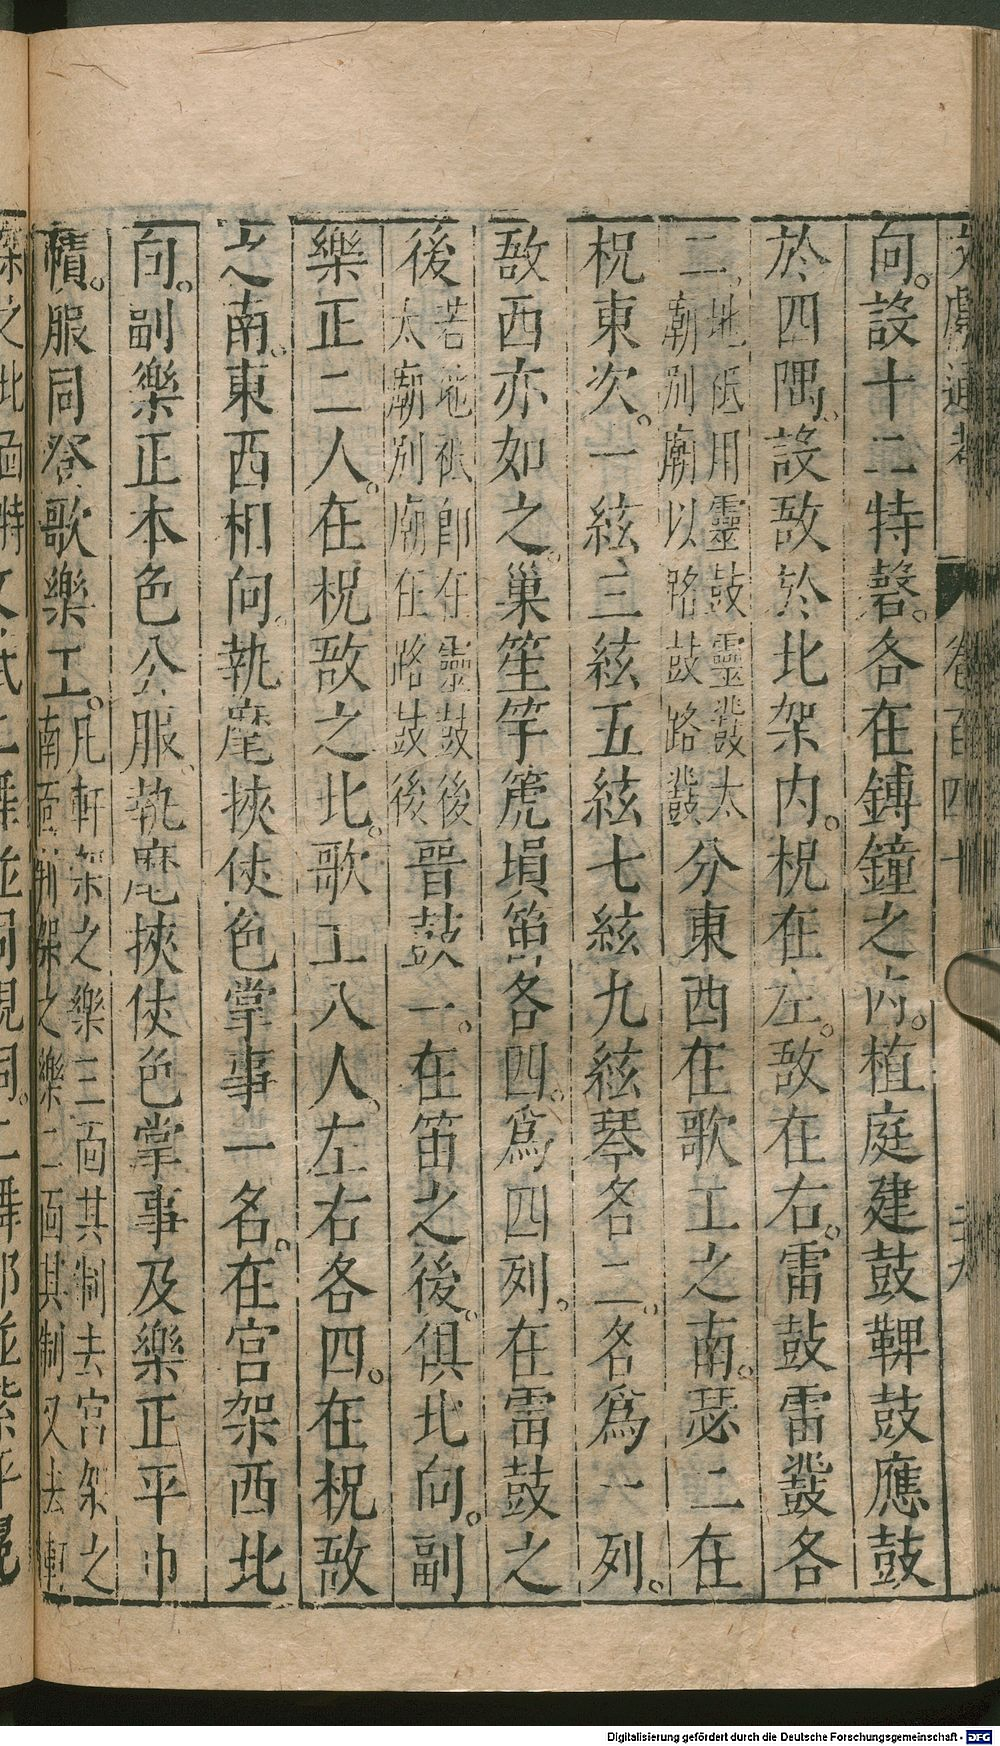 文獻通考 卷百四十 二十九
向。設十二特磬。各在鎛鐘之內。植庭建鼓鞞鼓應鼓
於四隅。設敔於北架內。柷在左。敔在右。雷鼓雷鼗各
二。地祇用靈鼓靈鼗太
廟別廟以路鼓路鼗分東西在歌工之南。瑟二在
柷東次。一絃三絃五絃七絃九絃琴各二。各為一列。
敔西亦如之。巢笙竽箎塤笛各四。爲四列。在雷鼓之
後若地祇即在靈鼓後
太廟別廟在路鼓後晉鼓一。在笛之後。俱北向。副
樂正二人。在柷敔之北。歌工八人。左右各四。在柷敔
之南。東西相向。執麾挾仗色掌事一名。在宮架西北
向。副樂正本色公服、執麾挾仗色掌事及樂正平巾
幘。服同登歌樂工。凡軒架之樂三面其制去宮架之
南面判架之樂二面其制又去軒
架之北面特
之舞並同親祠。二舞郎並紫平冕
Digitalisierung gefördert durch die Deutsche Forschungsgemeinschaft - DFG